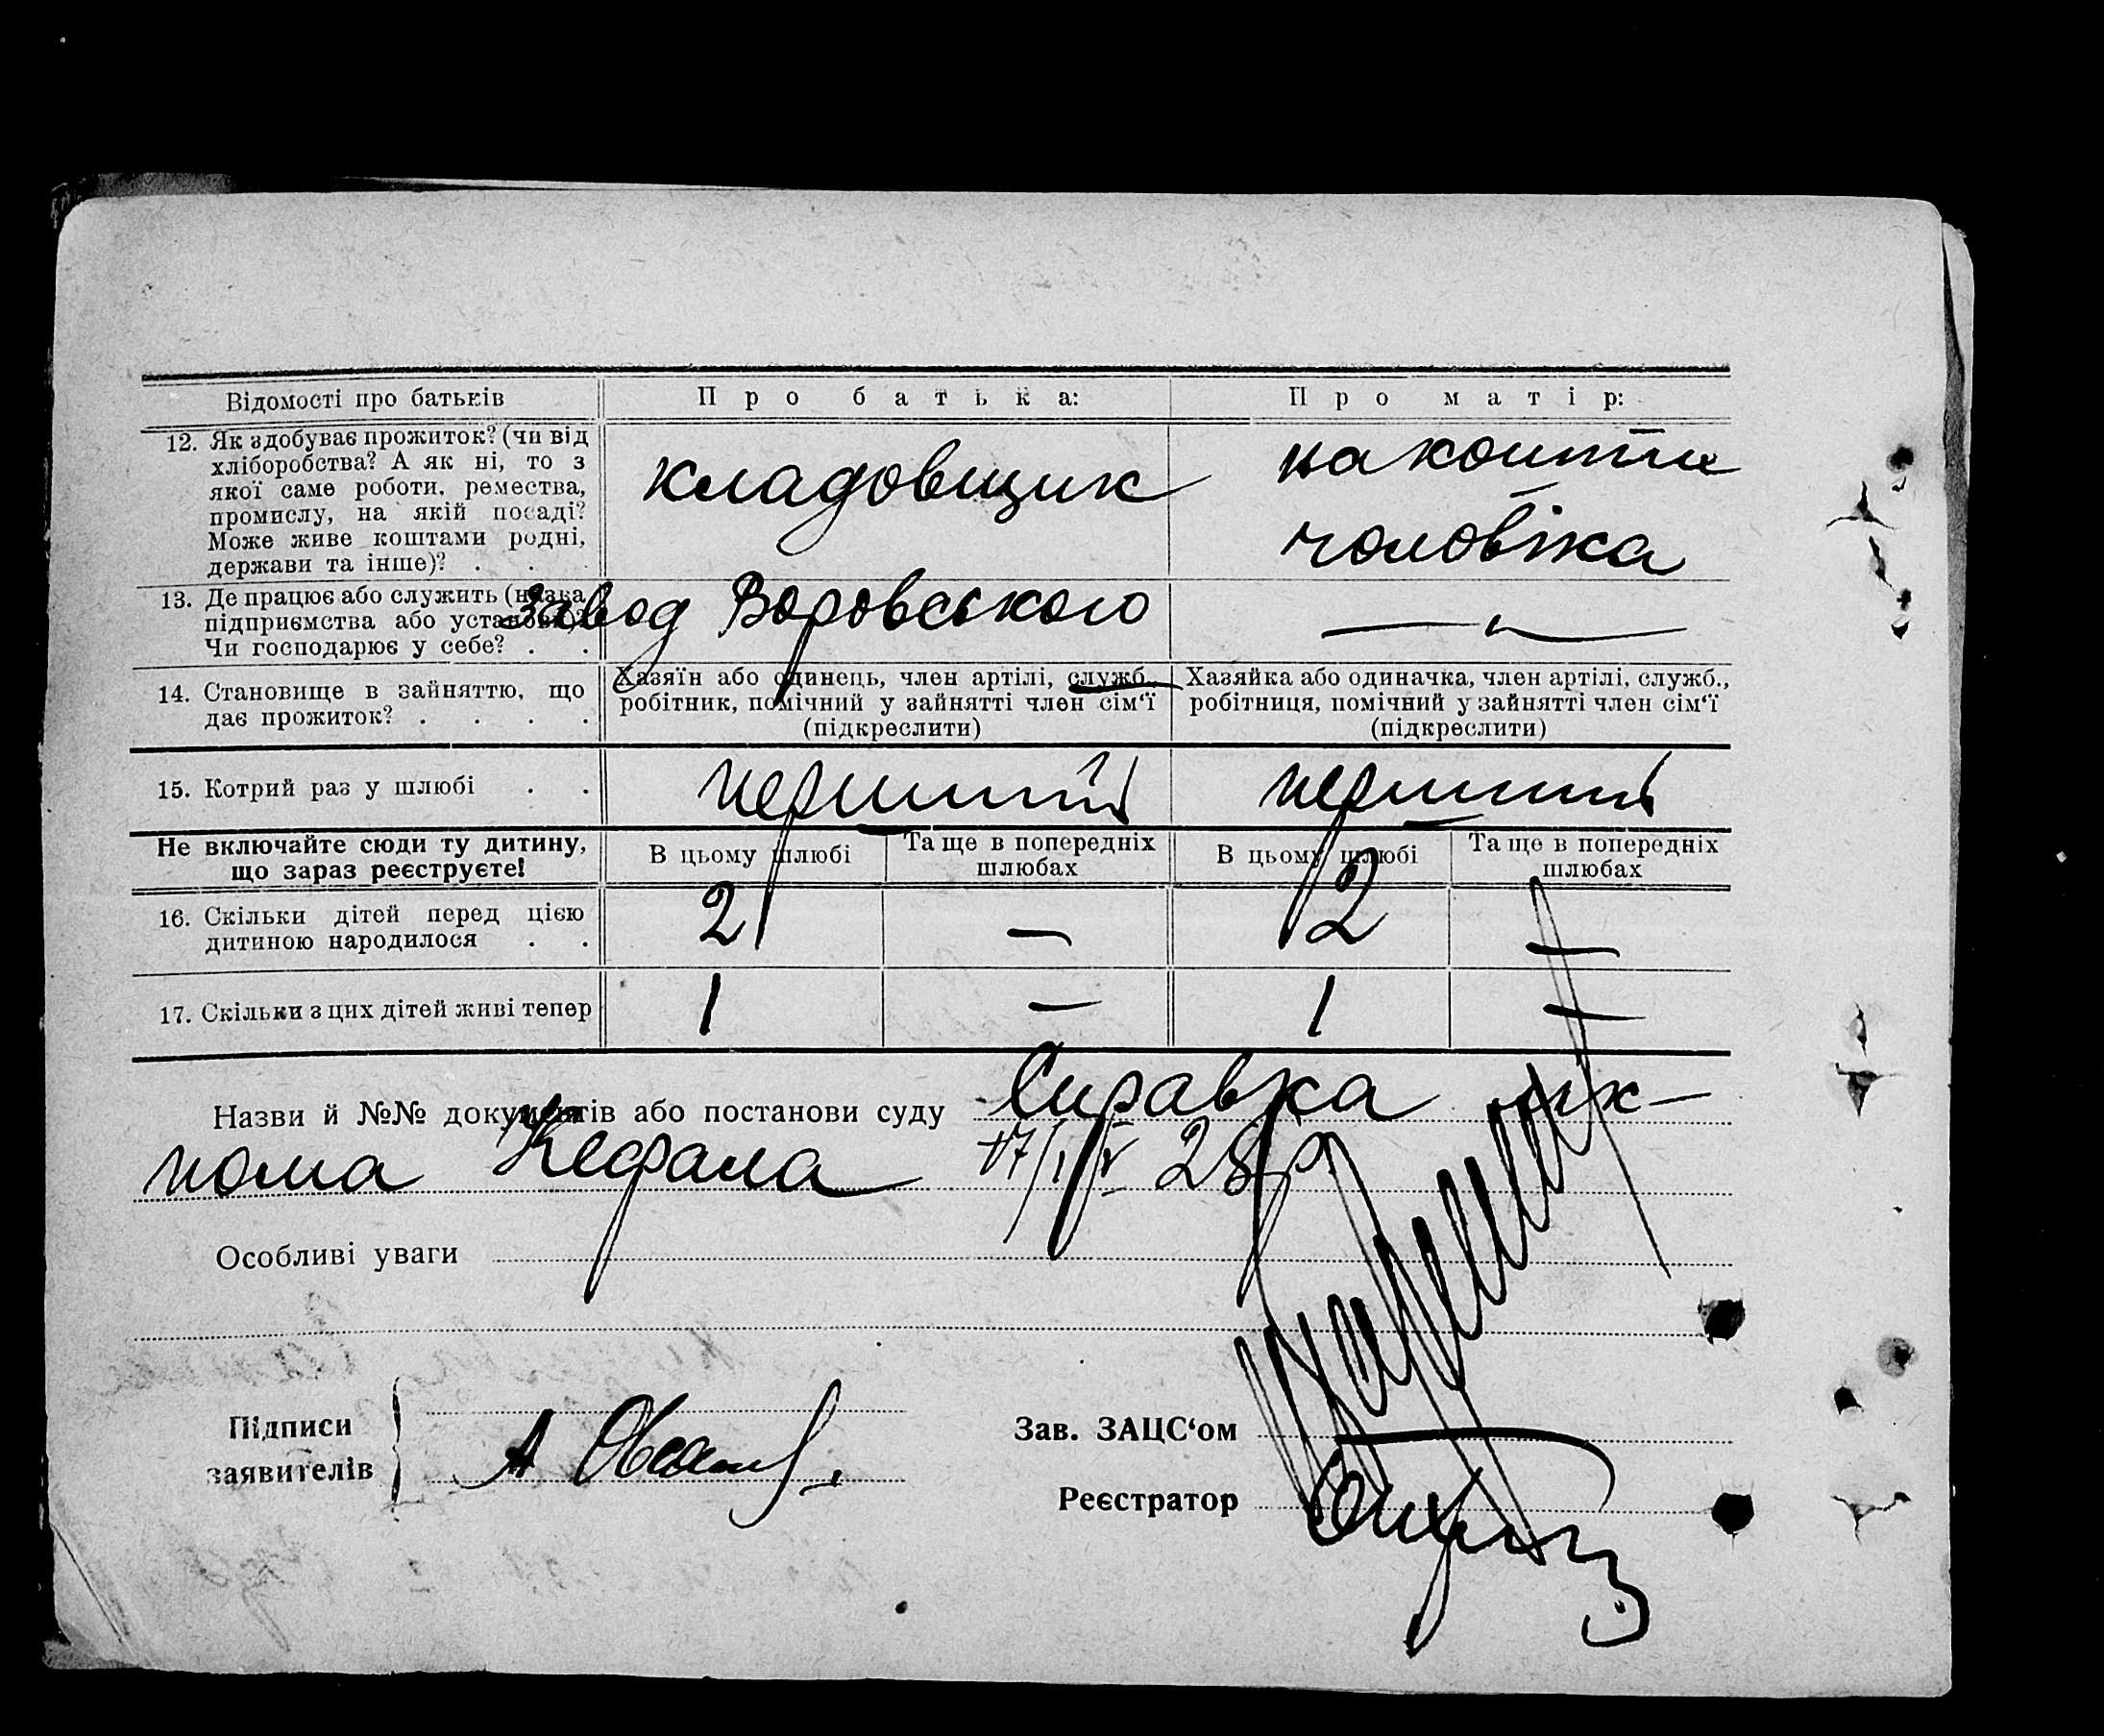 Відомості про батьків
Про батька:
Про матір:
12. Як здобуває прожиток? (чи від
хліборобства? А як ні, то з
якої саме роботи, ремества,
промислу, на якій посаді?
Може живе коштами родні,
держави та інше)? . .
кладовщик
на кошти
чоловіка
13. Де працює або служить (назва
підприємства або установи)?
Чи господарює у себе? . .
завод Воровського
—
14. Становище в зайняттю, що
дає прожиток? . . . .
Хазяїн або одинець, член артілі, служб.,
робітник, помічний у зайнятті член сім‘ї
(підкреслити)
Хазяйка або одиначка, член артілі, служб.,
робітниця, помічний у зайнятті член сім‘ї
(підкреслити)
15. Котрий раз у шлюбі . .
перший
перший
Не включайте сюди ту дитину,
що зараз реєструєте!
В цьому шлюбі
Та ще в попередніх
шлюбах
В цьому шлюбі
Та ще в попередніх
шлюбах
16. Скільки дітей перед цією
дитиною народилося . .
2 — 2 —
17. Скільки з цих дітей живі тепер
1 — 1 —
Назви й №№ документів або постанови суду Справка
17/IV 28р.
Особливі уваги
Підписи
заявителів
А
Зав. ЗАЦС‘ом
Реєстратор